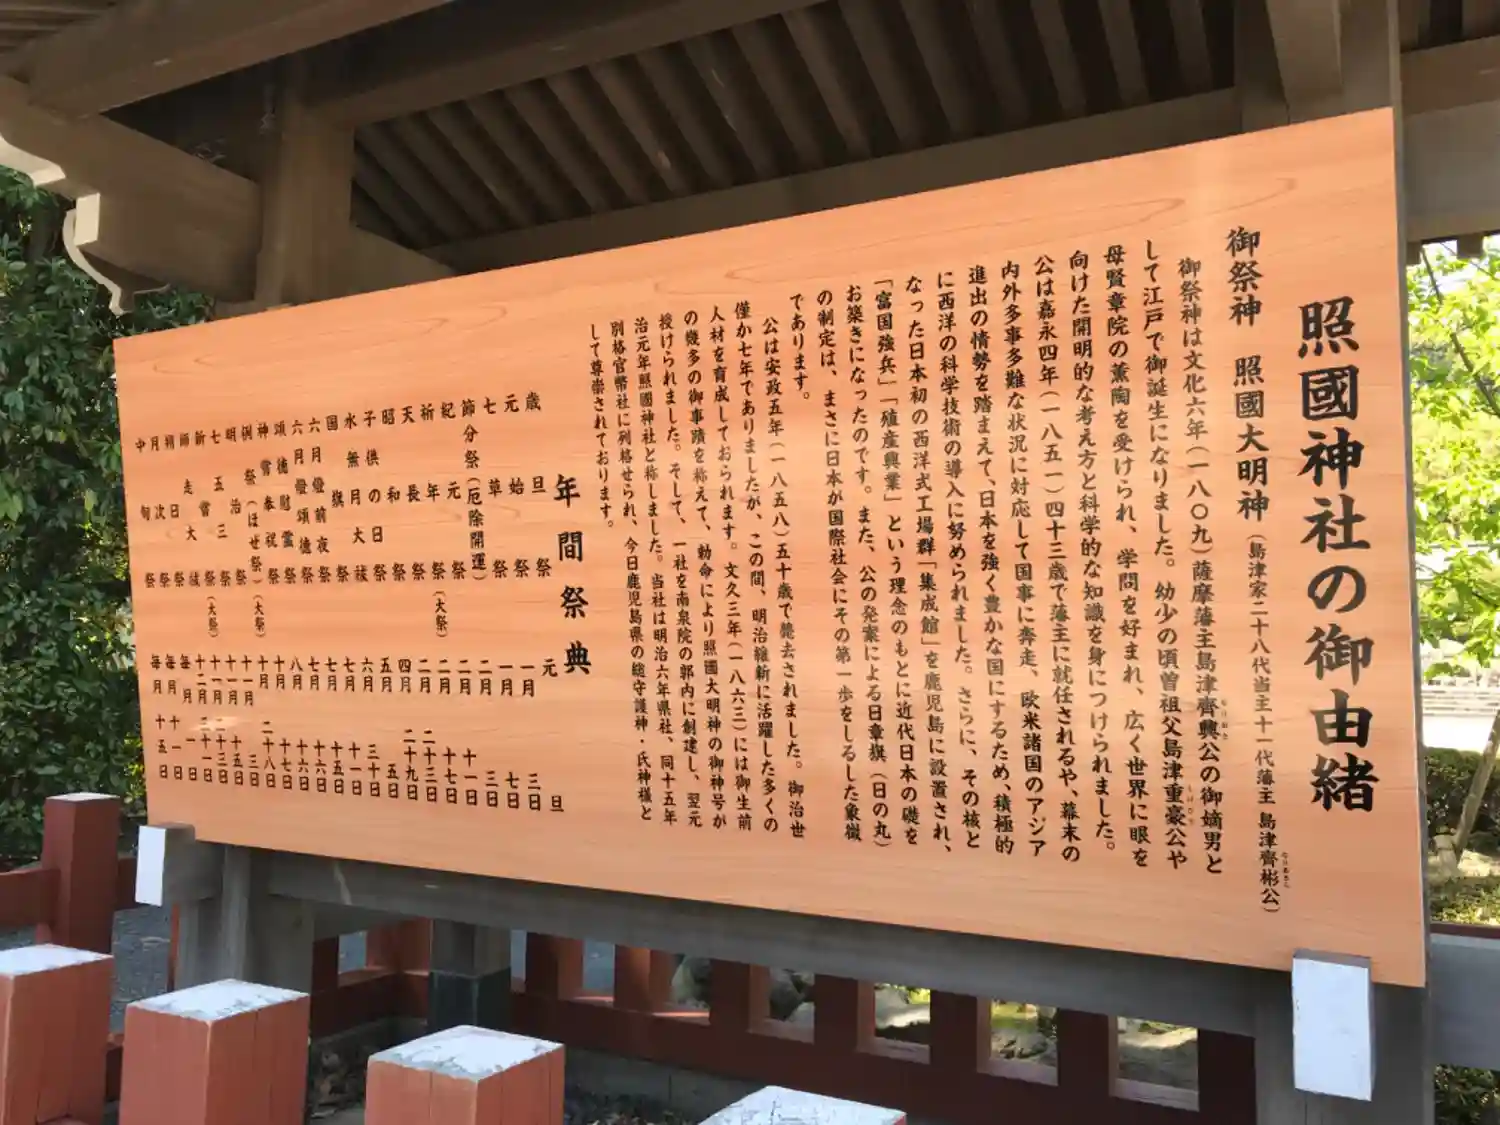 照國神社の御由緒
御祭神　照國大明神（島津家二十八代当主十一代藩主 島津齊彬公）
御祭神は文化六年（一八〇九）薩摩藩主島津齊興公の御嫡男と
して江戸で御誕生になりました。幼少の頃曽祖父島津重豪公や
母賢章院の薫陶を受けられ、学問を好まれ、広く世界に眼を
向けた開明的な考え方と科学的な知識を身につけられました。
公は嘉永四年（一八五一）四十三歳で藩主に就任されるや、幕末の
内外多事多難な状況に対応して国事に奔走、欧米諸国のアジア
進出の情勢を踏まえて、日本を強く豊かな国にするため、積極的
に西洋の科学技術の導入に努められました。さらに、その核と
なった日本初の西洋式工場群「集成館」を鹿児島に設置され、
「富国強兵」「殖産興業」という理念のもとに近代日本の礎を
お築きになったのです。また、公の発案による日章旗（日の丸）
の制定は、まさに日本が国際社会にその第一歩をしるした象徴
であります。
公は安政五年（一八五八）五十歳で薨去されました。御治世
僅か七年でありましたが、この間、明治維新に活躍した多くの
人材を育成しておられます。文久三年（一八六三）には御生前
の幾多の御事蹟を称えて、勅命により照國大明神の御神号が
授けられました。そして、一社を南泉院の郭内に創建し、翌元
治元年照國神社と称しました。当社は明治六年県社、同十五年
別格官幣社に列格せられ、今日鹿児島県の総守護神・氏神様と
して尊崇されております。
年間祭典
歳旦祭　元旦
元始祭　一月三日
七草祭　一月七日
節分祭（厄除開運）　二月三日
紀元祭　二月十一日
祈年祭（大祭）　二月十七日
天長祭　二月二十三日
昭和祭　四月二十九日
子供の日祭　五月五日
水無月大祓　六月三十日
国旗祭　七月
六月燈前夜祭　七月十五日
六月燈頌徳祭　七月十六日
頌徳慰霊祭　八月十六日
神嘗奉祝祭　十月十七日
例祭（ほぜ祭）（大祭）　十月二十八日
明治祭　十一月三日
七五三祭　十一月十五日
新嘗祭（大祭）　十一月二十三日
師走大祓　十二月三十一日
朔日祭　毎月一日
月次祭　毎月十一日
中旬祭　毎月十五日